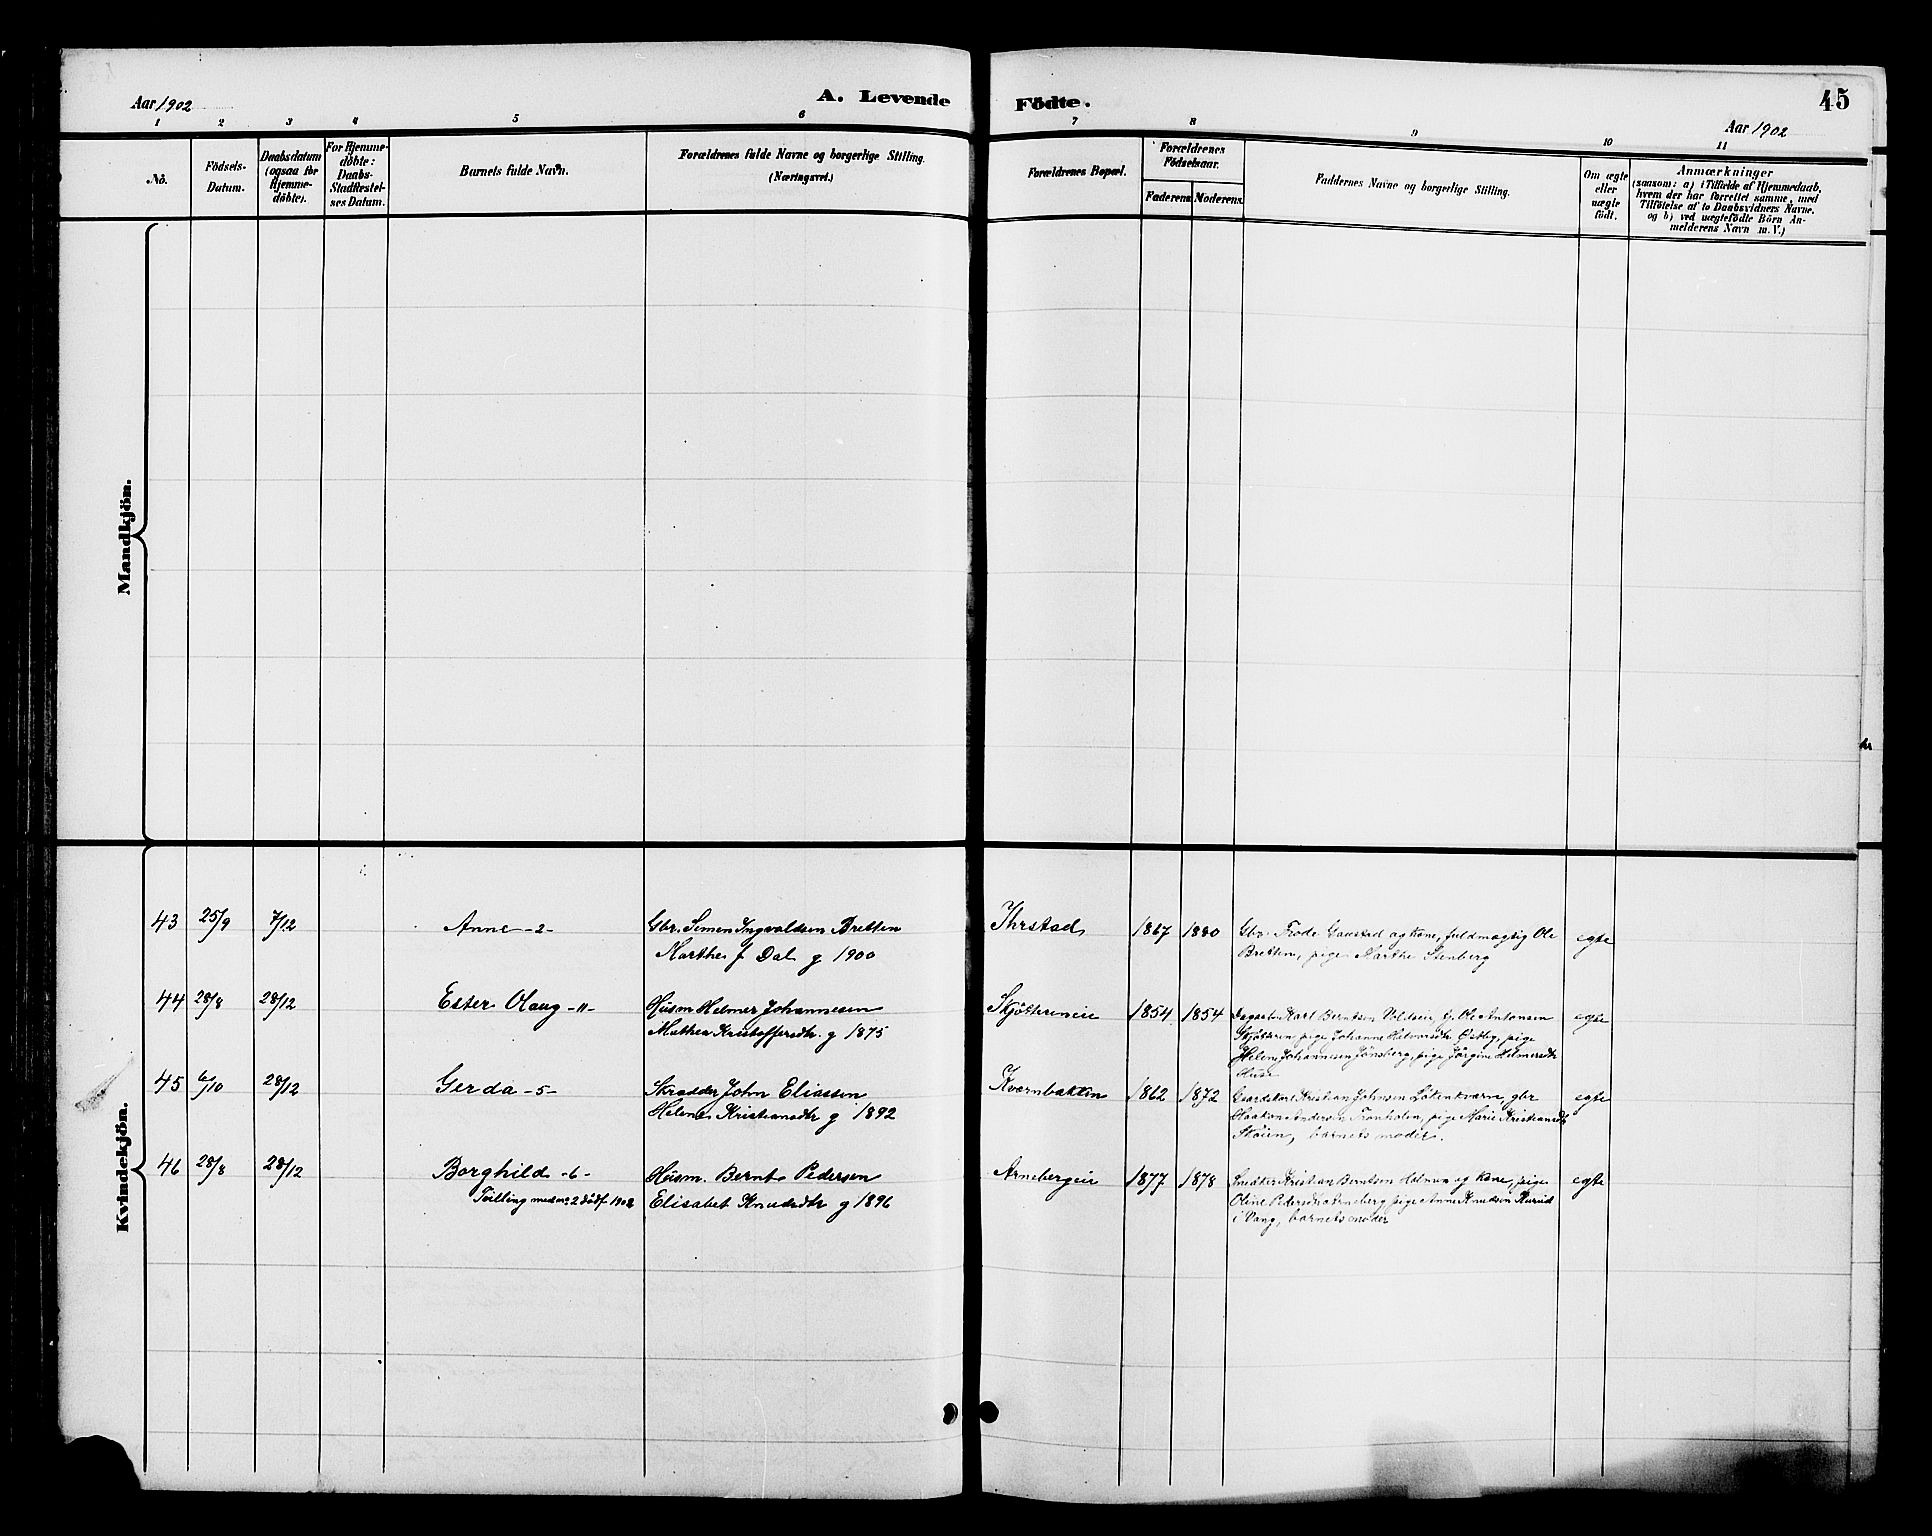 Aar 1902
A. Levende
Födte.
45
Aar 1902
1 2 3 4 5 6 7 8 9 10 11
No.
Födsels-
Datum.
Daabsdatum
(ogsaa for
Hjemme-
döbte).
For Hjemme-
döbte:
Daabs-
Stadfæstel-
ses Datum.
Barnets fulde Navn.
Forældrenes fulde Navne og borgerlige Stilling.
(Næringsvei.)
Forældrenes Bopæl.
Forældrenes
Födselsaar.
Faderens.
Moderens.
Faddernes Navne og borgerlige Stilling.
Om ægte
eller
uægte
födt.
Anmærkninger
(saasom: a) i Tilfælde af Hjemmedaab,
hvem der har forrettet samme, med
Tilföielse af to Daabsvidners Navne.
og b) ved uægtefödte Börn An-
melderens Navn m. V.)
Mandkjön.
Kvindekjön.
43 25/9 7/12 Anne -2- Gbr. Simen Ingvaldsen Bretten
Marthe f Dal g 1900
Ihrstad 1867 1880 Gbr. Frode Gaustad og kone, fuldmægtig Ole
Bretten, pige Marthe Stenberg
egte
44 28/8 28/12 Ester Olaug -"- Husm Helmer Johannesen
Mathea Kristoffersdtr. g 1875
Skjötteneie 1854 1854 Dagarb. Karl Berntsen Voldseie, Ole Antonsen
Skjötten, pige Johanne Helmersdtr Östby, pige
Helene Johannesen Jönsberg, pige Jörgine Helmersdtr
Huse
egte
45 6/10 28/12 Gerda -5- Skrædder John Eliassen
Helene Kristiansdtr g 1892
Kværnbakken 1862 1872 Gaardskarl Kristian Johnsen Lötenkværn, gbr
Haakon Andersen Tronholen, pige Marie Kristiansdtr
Sköien, barnets moder.
egte
46 28/8 28/12 Borghild -6-
Tvilling med no 2 dödf. 1902
Husm. Bernt Pedersen
Elisabet Knudsdtr g 1896
Arnebergeie 1877 1878 Smed Kristian Berntsen Helnum og kone, pige
Oline Pedersdtr Arneberg, pige Anne Knudsen Kurud
i Vang, barnets moder
egte